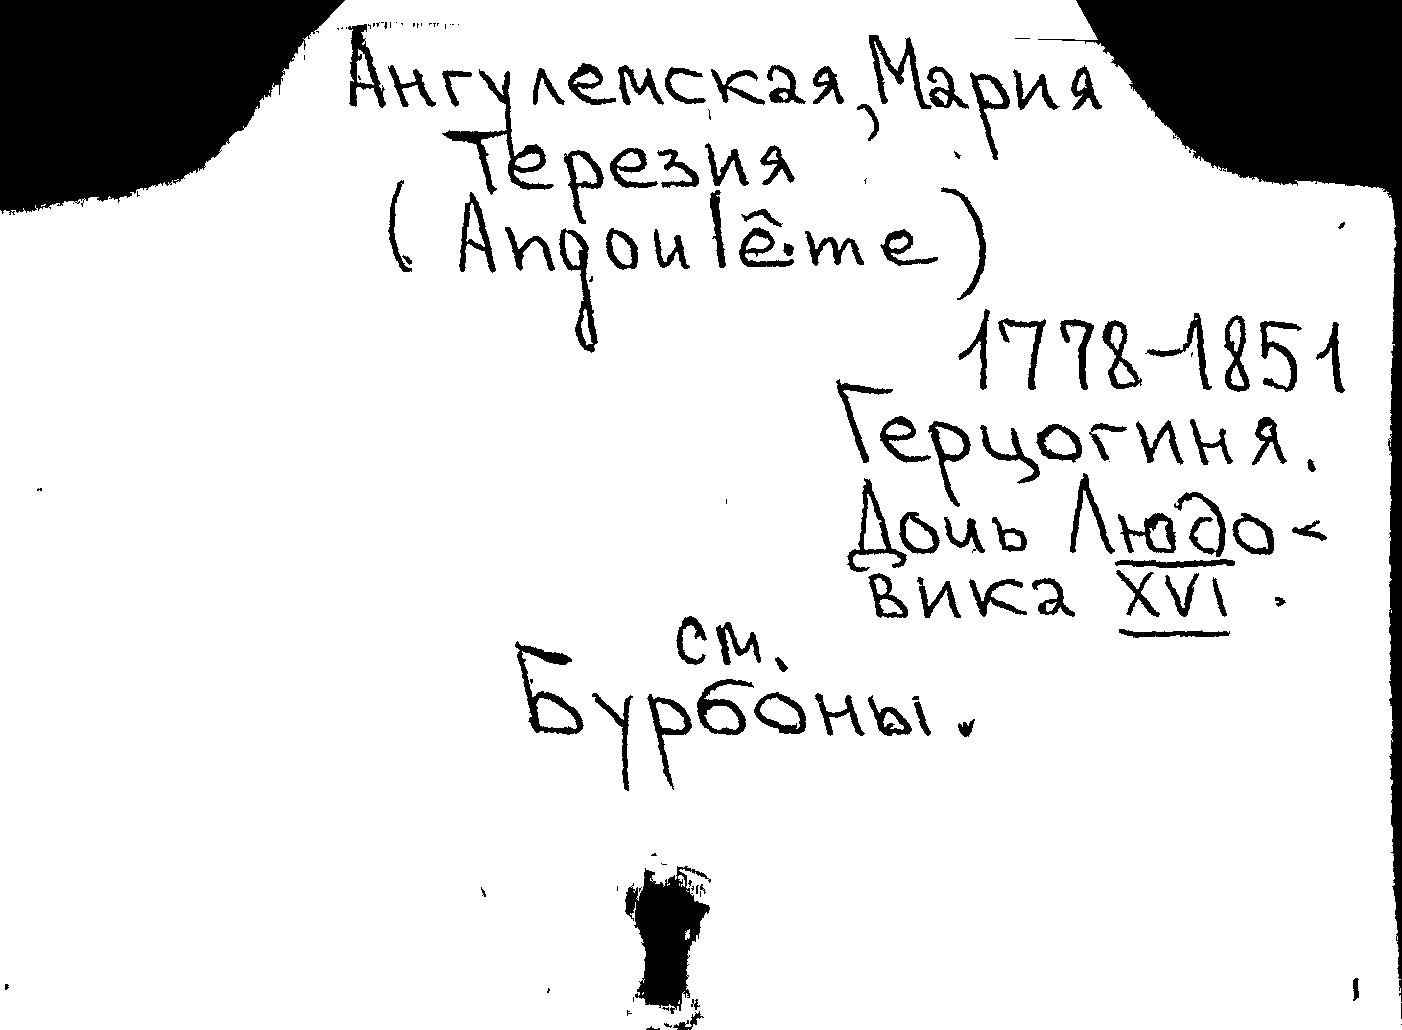 Ангулемская, Мария
Терезия
(Angoulême)
1778-1851
Герцогиня.
Дочь Людо-
вика XVI.
см.
Бурбоны.